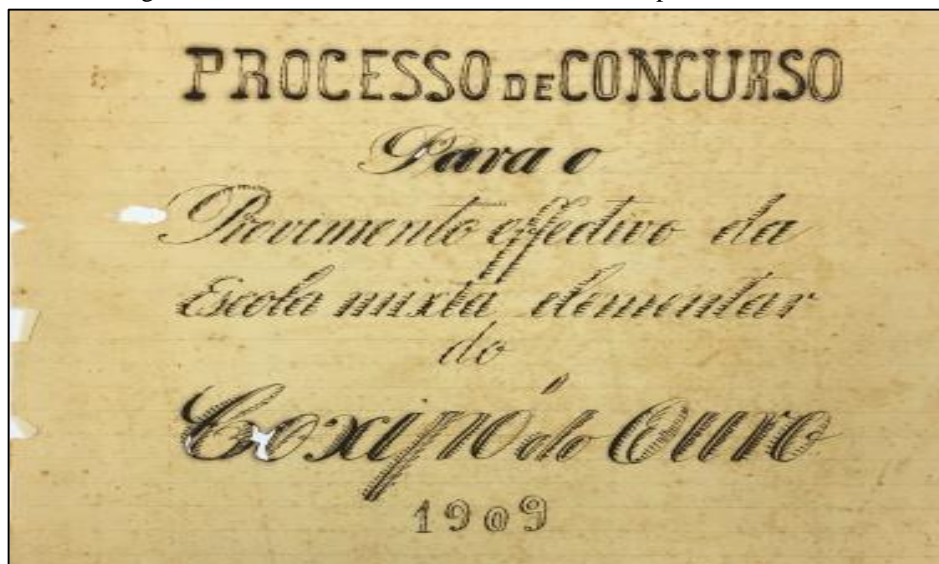 PROCESSO DE CONCURSO
Para o
Provimento effectivo da
Escola mixta elementar
do
Coxipó do Ouro
1909